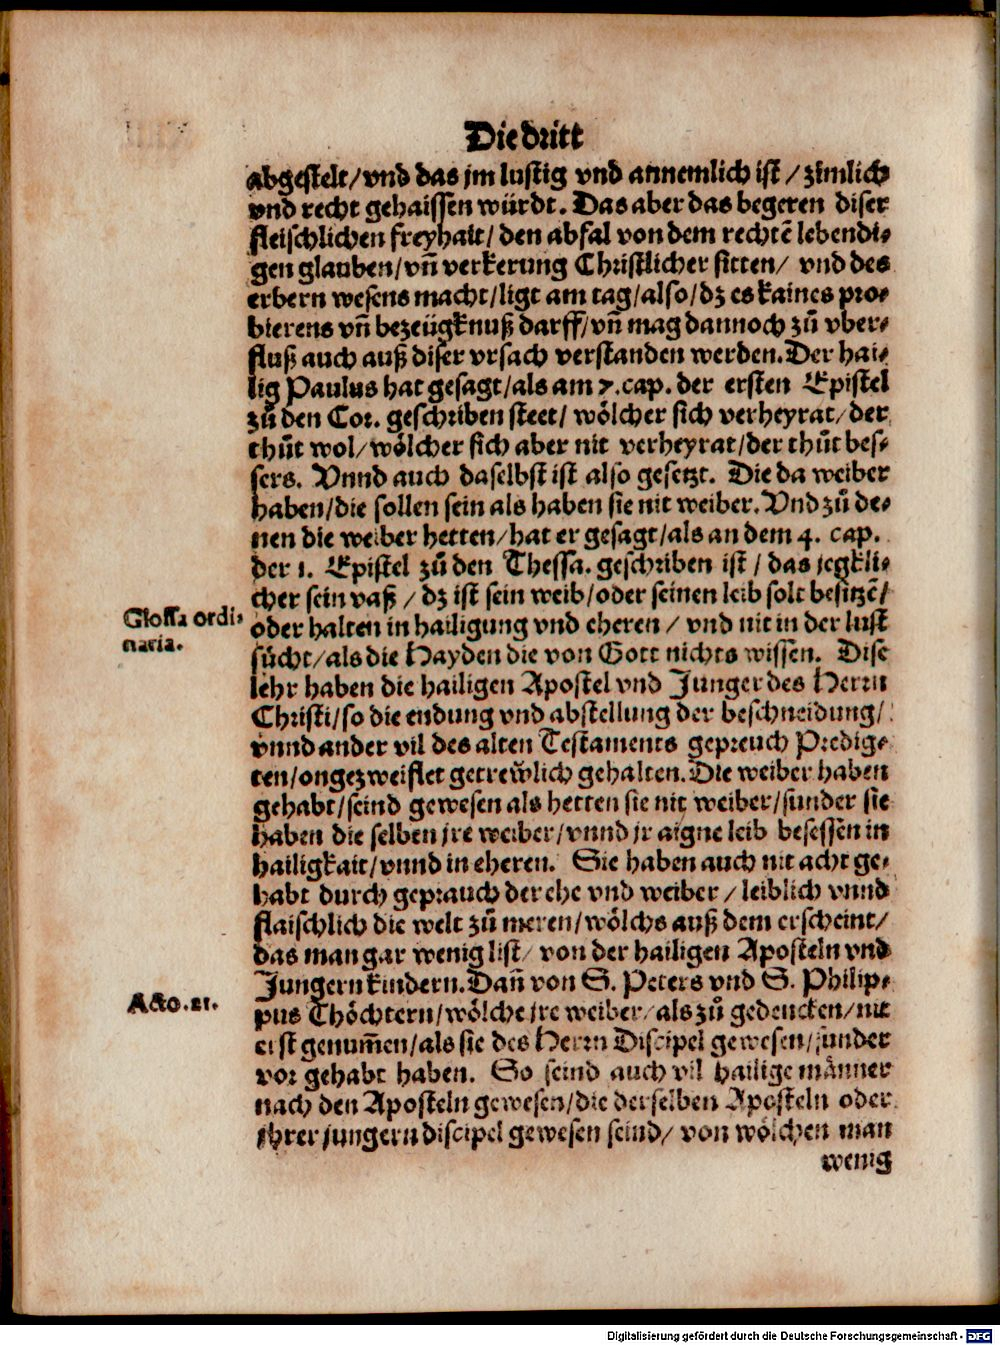 Die dritt
abgestelt/vnd das jm lustig vnd annemlich ist/zimlich
vnd recht gehaissen würdt. Das aber das begeren diser
fleischlichen freyhait/den abfal von dem rechtē lebendi⸗
gen glauben/vñ verkerung Christlicher sitten/ vnd des
erbern wesens macht/ligt am tag/also/dz es kaines pro⸗
bierens vñ bezeügknuß darff/vñ mag dannoch zů vber⸗
fluß auch auß diser vrsach verstanden werden. Der hai⸗
lig Paulus hat gesagt/als am 7. cap. der ersten Epistel
zů den Cor. geschriben steet/ wölcher sich verheyrat/der
thůt wol/wölcher sich aber nit verheyrat/der thůt bes⸗
sers. Vnnd auch daselbst ist also gesetzt. Die da weiber
haben/die sollen sein als haben sie nit weiber. Vnd zů de⸗
nen die weiber hetten/hat er gesagt/als an dem 4. cap.
der 1. Epistel zů den Thessa. geschriben ist/das jegkli⸗
cher sein vaß/dz ist sein weib/oder seinen leib solt besitzē/
Glossa ordi⸗
naria.
oder halten in hailigung vnd eheren/ vnd nit in der lust
sůcht/als die Hayden die von Gott nichts wissen. Dise
lehr haben die hailigen Apostel vnd Junger des Herrn
Christi/so die endung vnd abstellung der beschneidung/
vnnd ander vil des alten Testaments gepreuch Predig⸗
ten/ongezweiflet getrewlich gehalten. Die weiber haben
gehabt/seind gewesen als hetten sie nit weiber/sunder sie
haben die selben jre weiber/vnnd jr aigne leib besessen in
hailigkait/vnnd in eheren. Sie haben auch nit acht ge⸗
habt durch geprauch der ehe vnd weiber/leiblich vnnd
flaischlich die welt zů meren/wölchs auß dem erscheint/
das man gar wenig list/ von der hailigen Aposteln vnd
Jungern kindern. Dañ von S. Peters vnd S. Philip⸗
Acto. 21.
pus Thöchtern/wölche jre weiber/als zů gedencken/nit
erst genum̄en/als sie des Herrn Discipel gewesen/sunder
vor gehabt haben. So seind auch vil hailige männer
nach den Aposteln gewesen/die derselben Aposteln oder
jhrer jungern discipel gewesen seind/ von wölchen man
wenig
Digitalisierung gefördert durch die Deutsche Forschungsgemeinschaft - DFG